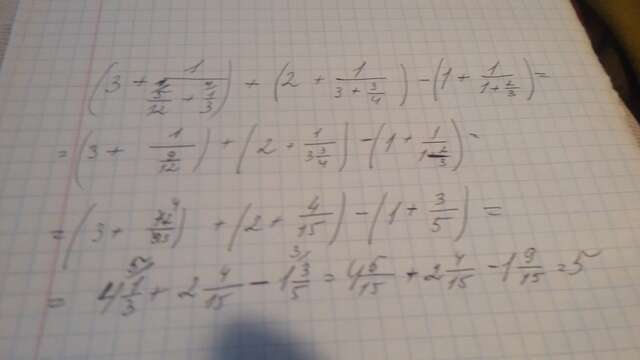 (3 + 1/(5/12 + 1/3)) + (2 + 1/(3 + 3/4)) - (1 + 1/(1 + 2/3)) =
= (3 + 1/(9/12)) + (2 + 1/(3 3/4)) - (1 + 1/(1 2/3)) =
= (3 + ) + (2 + 4/15) - (1 + 3/5) =
= 4 1/3 + 2 4/15 - 1 3/5 = 4 5/15 + 2 4/15 - 1 9/15 = 5